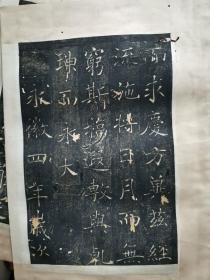 而求慶方冀茲經
流施將日月而無
窮斯福遐敷與乾
坤而永大
永徽四年歲次